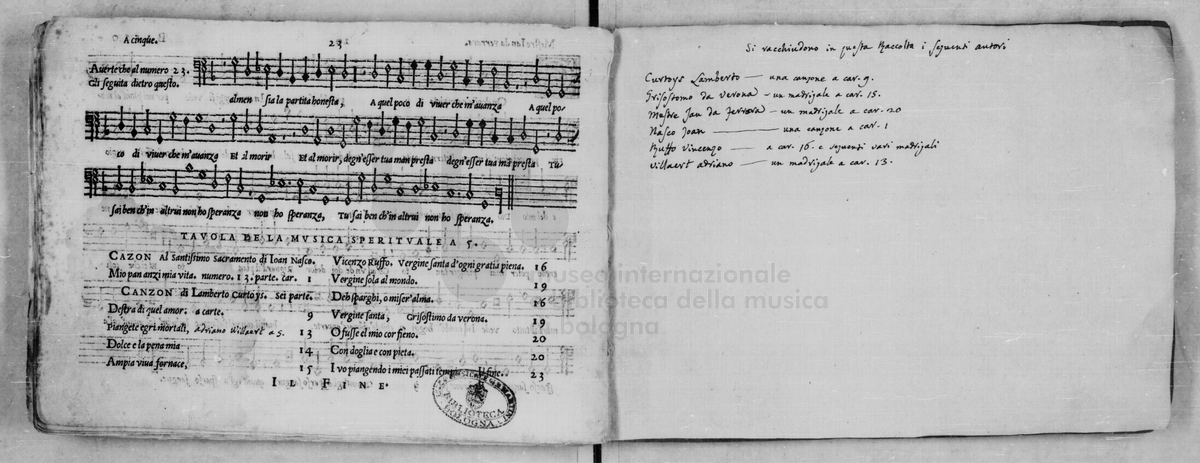 A cinque.
23
Auerte che al numero 23.
Gli seguita dietro questo.
almen sia la partita honesta, A quel poco di viver che m'auanza A quel po-
co di viuer che m'auanza Et al morir Et al morir, degn'esser tua man presta degn'esser tua mã presta Tu
sai ben ch'in altrui non ho speranza non ho speranza, Tu sai ben ch'in altrui non ho speranza.
TAVOLA DE LA MVSICA SPERITVALE A 5.
CAZON Al Santissimo Sacramento di Ioan Nasco.
Mio pan anzi mia vita. numero. 13. parte. car. 1
CANZON di Lamberto Curtoys. sei parte.
Destra di quel amor; a carte. 9
piangete egri mortali, Adriano Willaert a 5. 13
Dolce e la pena mia 14
Ampia viua fornace, 15
Vicenzo Ruffo. Vergine santa d'ogni gratia piena. 16
Vergine sola al mondo. 19
Deh sparghi, o miser'alma. 16
Vergine santa, Grisostimo da verona. 19
O fusse el mio cor fieno. 20
Con doglia e con pieta. 20
I vo piangendo i miei passati tempi. Il fine. 23
IL FINE.
BIBLIOTECA
BOLOGNA
Si racchiudono in questa Raccolta i seguenti autori
Curtoys Lamberto — una canzone a car. 9.
Grisostomo da Verona - un madrigale a car. 15.
Mastre Jan da Ferrara - un madrigale a car. 20
Nasco Joan — una canzone a car. 1
Ruffo Vincenzo — a car. 16. e seguenti vari madrigali
Villaert Adriano — un madrigale a car. 13.
museo internazionale
biblioteca della musica
bologna